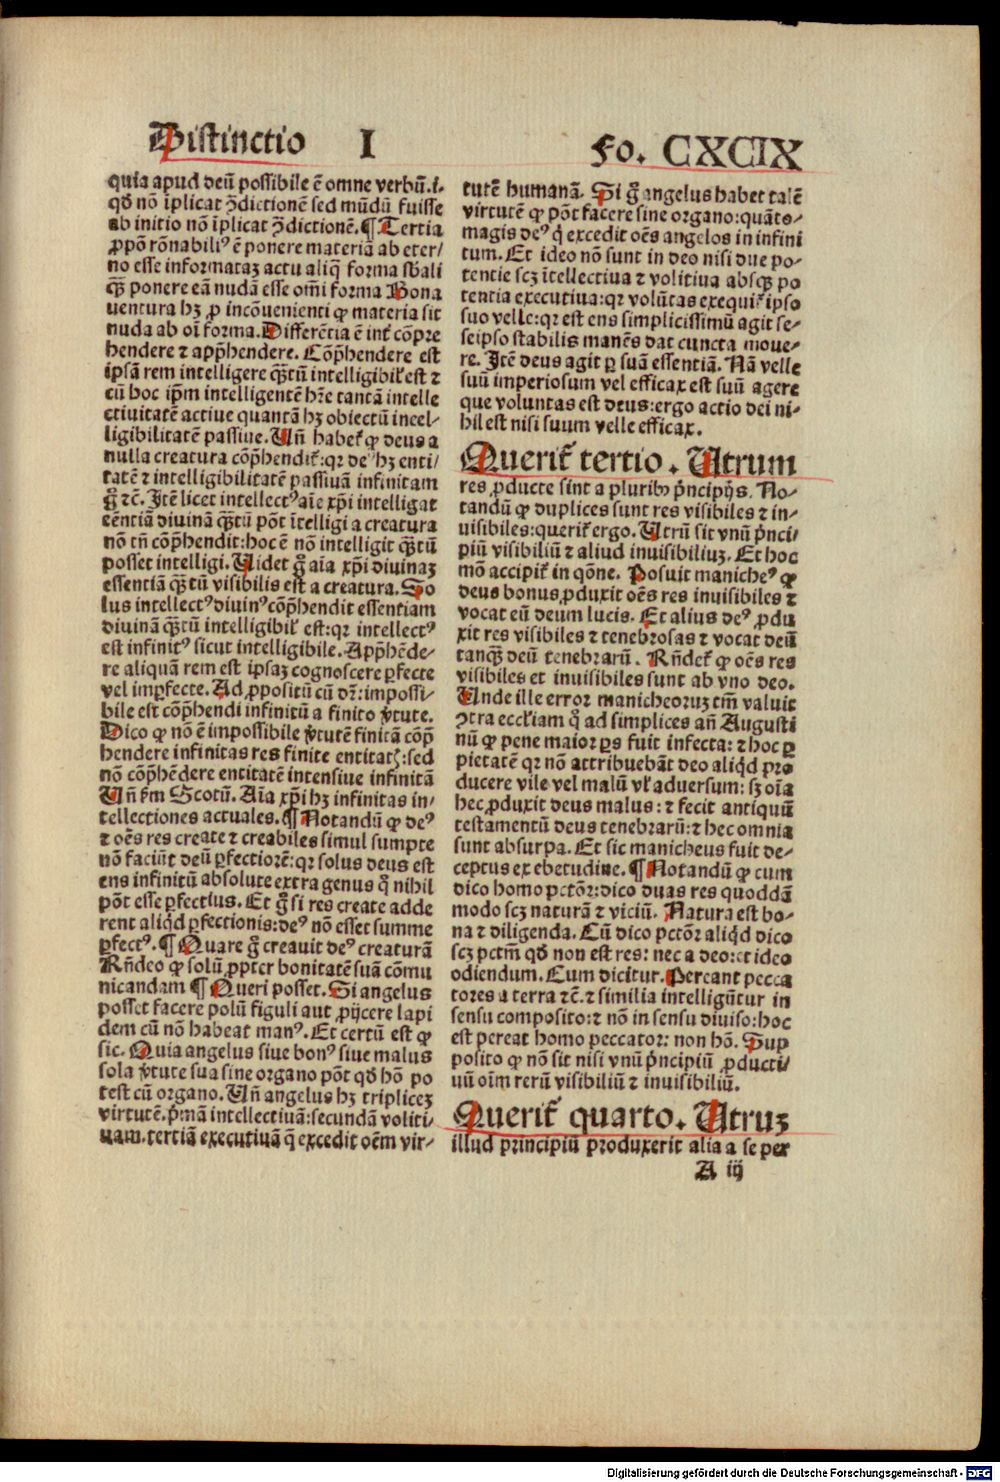 Distinctio I Fo. CXCIX
quia apud deũ possibile ẽ omne verbũ.i.
qđ nõ ĩplicat ꝯdictionẽ sed mũdũ fuisse
ab initio nõ ĩplicat ꝯdictionẽ.¶Tertia
ꝓpõ rõnabiliꝰ ẽ ponere materiã ab eter/
no esse informataꝫ actu aliq̃ forma sb̃ali
q̃ꝫ ponere eã nudã esse om̃i forma Bona
uentura hꝫ ꝓ incõuenienti ꝙ materia sit
nuda ab oĩ forma.Differẽtia ẽ int̃ cõpre
hendere ⁊ app̃hendere. Cõp̃hendere est
ipsã rem intelligere q̃ꝫtũ intelligibił est ⁊
cũ hoc ip̃m intelligentẽ hr̃e tantã intelle
ctiuitatẽ actiue quantã hꝫ obiectũ intel-
ligibilitatẽ passiue.Uñ habet̃ ꝙ deus a
nulla creatura cõp̃hendit̃:qꝛ deꝰ hꝫ enti/
tatẽ ⁊ intelligibilitatẽ passiuã infinitam
g̃ ⁊c̃. Itẽ licet intellectꝰ aĩe xp̃i intelligat
eẽntiã diuinã q̃ꝫtũ põt ĩtelligi a creatura
nõ tñ cõp̃hendit:hoc ẽ nõ intelligit q̃ꝫtũ
posset intelligi.Uidet g̃ aĩa xp̃i diuinaꝫ
essentiã q̃ꝫtũ visibilis est a creatura.So
lus intellectꝰ diuinꝰ cõp̃hendit essentiam
diuinã q̃ꝫtũ intelligibił est:qꝛ intellectꝰ
est infinitꝰ sicut intelligibile.App̃hẽde-
re aliquã rem est ipsaꝫ cognoscere ꝑfecte
vel imꝑfecte.Ad ꝓpositũ cũ dr̃:impossi/
bile est cõp̃hendi infinitũ a finito ṽtute.
Dico ꝙ nõ ẽ impossibile ṽtutẽ finitã cõp̃
hendere infinitas res finite entitatꝭ:sed
nõ cõp̃hẽdere entitatẽ intensiue infinitã
Uñ fm̃ Scotũ. Aĩa xp̃i hꝫ infinitas in/
tellectiones actuales.¶Notandũ ꝙ deꝰ
⁊ oẽs res create ⁊ creabiles simul sumpte
nõ faciũt deũ ꝑfectiorẽ:qꝛ solus deus est
ens infinitũ absolute extra genus q̃ nihil
põt esse ꝑfectius. Et g̃ si res create adde
rent aliqđ ꝑfectionis:deꝰ nõ esset summe
ꝑfectꝰ.¶Quare g̃ creauit deꝰ creaturã
Rñdeo ꝙ solũ ꝓpter bonitatẽ suã cõmu
nicandam ¶Queri posset. Si angelus
posset facere polũ figuli aut ꝓijcere lapi
dem cũ nõ habeat manꝰ. Et certũ est ꝙ
sic. Quia angelus siue bonꝰ siue malus
sola ṽtute sua sine organo põt qđ hõ po
test cũ organo. Uñ angelus hꝫ triplicẽ
virtutẽ.p̃mã intellectiuã:secundã voliti/
uam.tertiã executiuã q̃ excedit oẽm vir/
tutẽ humanã. Si g̃ angelus habet talẽ
virtutẽ ꝙ põt facere sine organo:quãto-
magis deꝰ q̃ excedit oẽs angelos in infini
tum. Et ideo nõ sunt in deo nisi due po-
tentie scꝫ ĩtellectiua ⁊ volitiua absqꝫ po
tentia executiua:qꝛ volũtas exequit̃ ipso
suo velle:qꝛ est ens simplicissimũ agit se-
seipso stabilis manẽs dat cuncta moue-
re. Itẽ deus agit ꝑ suã essentiã. Nã velle
suũ imperiosum vel efficax est suũ agere
que voluntas est deus:ergo actio dei ni-
hil est nisi suum velle efficax.
Querit̃ tertio. Utrum
res ꝓducte sint a pluribꝰ p̃ncipijs. No-
tandũ ꝙ duplices sunt res visibiles ⁊ in-
uisibiles:querit̃ ergo. Utrũ sit vnũ p̃nci-
piũ visibiliũ ⁊ aliud inuisibiliuꝫ. Et hoc
mõ accipit̃ in qõne. Posuit manicheꝰ ꝙ
deus bonus ꝓduxit oẽs res inuisibiles ⁊
vocat eũ deum lucis. Et alius deꝰ ꝓdu
xit res visibiles ⁊ tenebrosas ⁊ vocat deũ
tanq̃ꝫ deũ tenebrarũ. Rñdet̃ ꝙ oẽs res
visibiles et inuisibiles sunt ab vno deo.
Unde ille error manicheoruꝫ tm̃ valuit
ꝯtra eccłiam q̃ ad simplices añ Augusti
nũ ꝙ pene maior ꝑs fuit infecta: ⁊ hoc ꝑ
pietatẽ qꝛ nõ attribuebãt deo aliqđ pro
ducere vile vel malũ vł aduersum: sꝫ oĩa
hec ꝓduxit deus malus: ⁊ fecit antiquũ
testamentũ deus tenebrarũ:⁊ hec omnia
sunt absurpa. Et sic manicheus fuit de-
ceptus ex ebetudine.¶Notandũ ꝙ cum
dico homo pctõꝛ:dico duas res quoddã
modo scꝫ naturã ⁊ viciũ. Natura est bo-
na ⁊ diligenda. Cũ dico pctõꝛ aliqđ dico
scꝫ pctm̃ qđ non est res: nec a deo:et ideo
odiendum. Cum dicitur. Pereant pecca
tores a terra ⁊c̃.⁊ similia intelligũtur in
sensu composito:⁊ nõ in sensu diuiso:hoc
est pereat homo peccator: non hõ. Sup
posito ꝙ nõ sit nisi vnũ p̃ncipiũ ꝓducti/
uũ oĩm rerũ visibiliũ ⁊ inuisibiliũ.
Querit̃ quarto. Utruꝫ
illud principiũ produxerit alia a se per
A iij
Digitalisierung gefördert durch die Deutsche Forschungsgemeinschaft - DFG